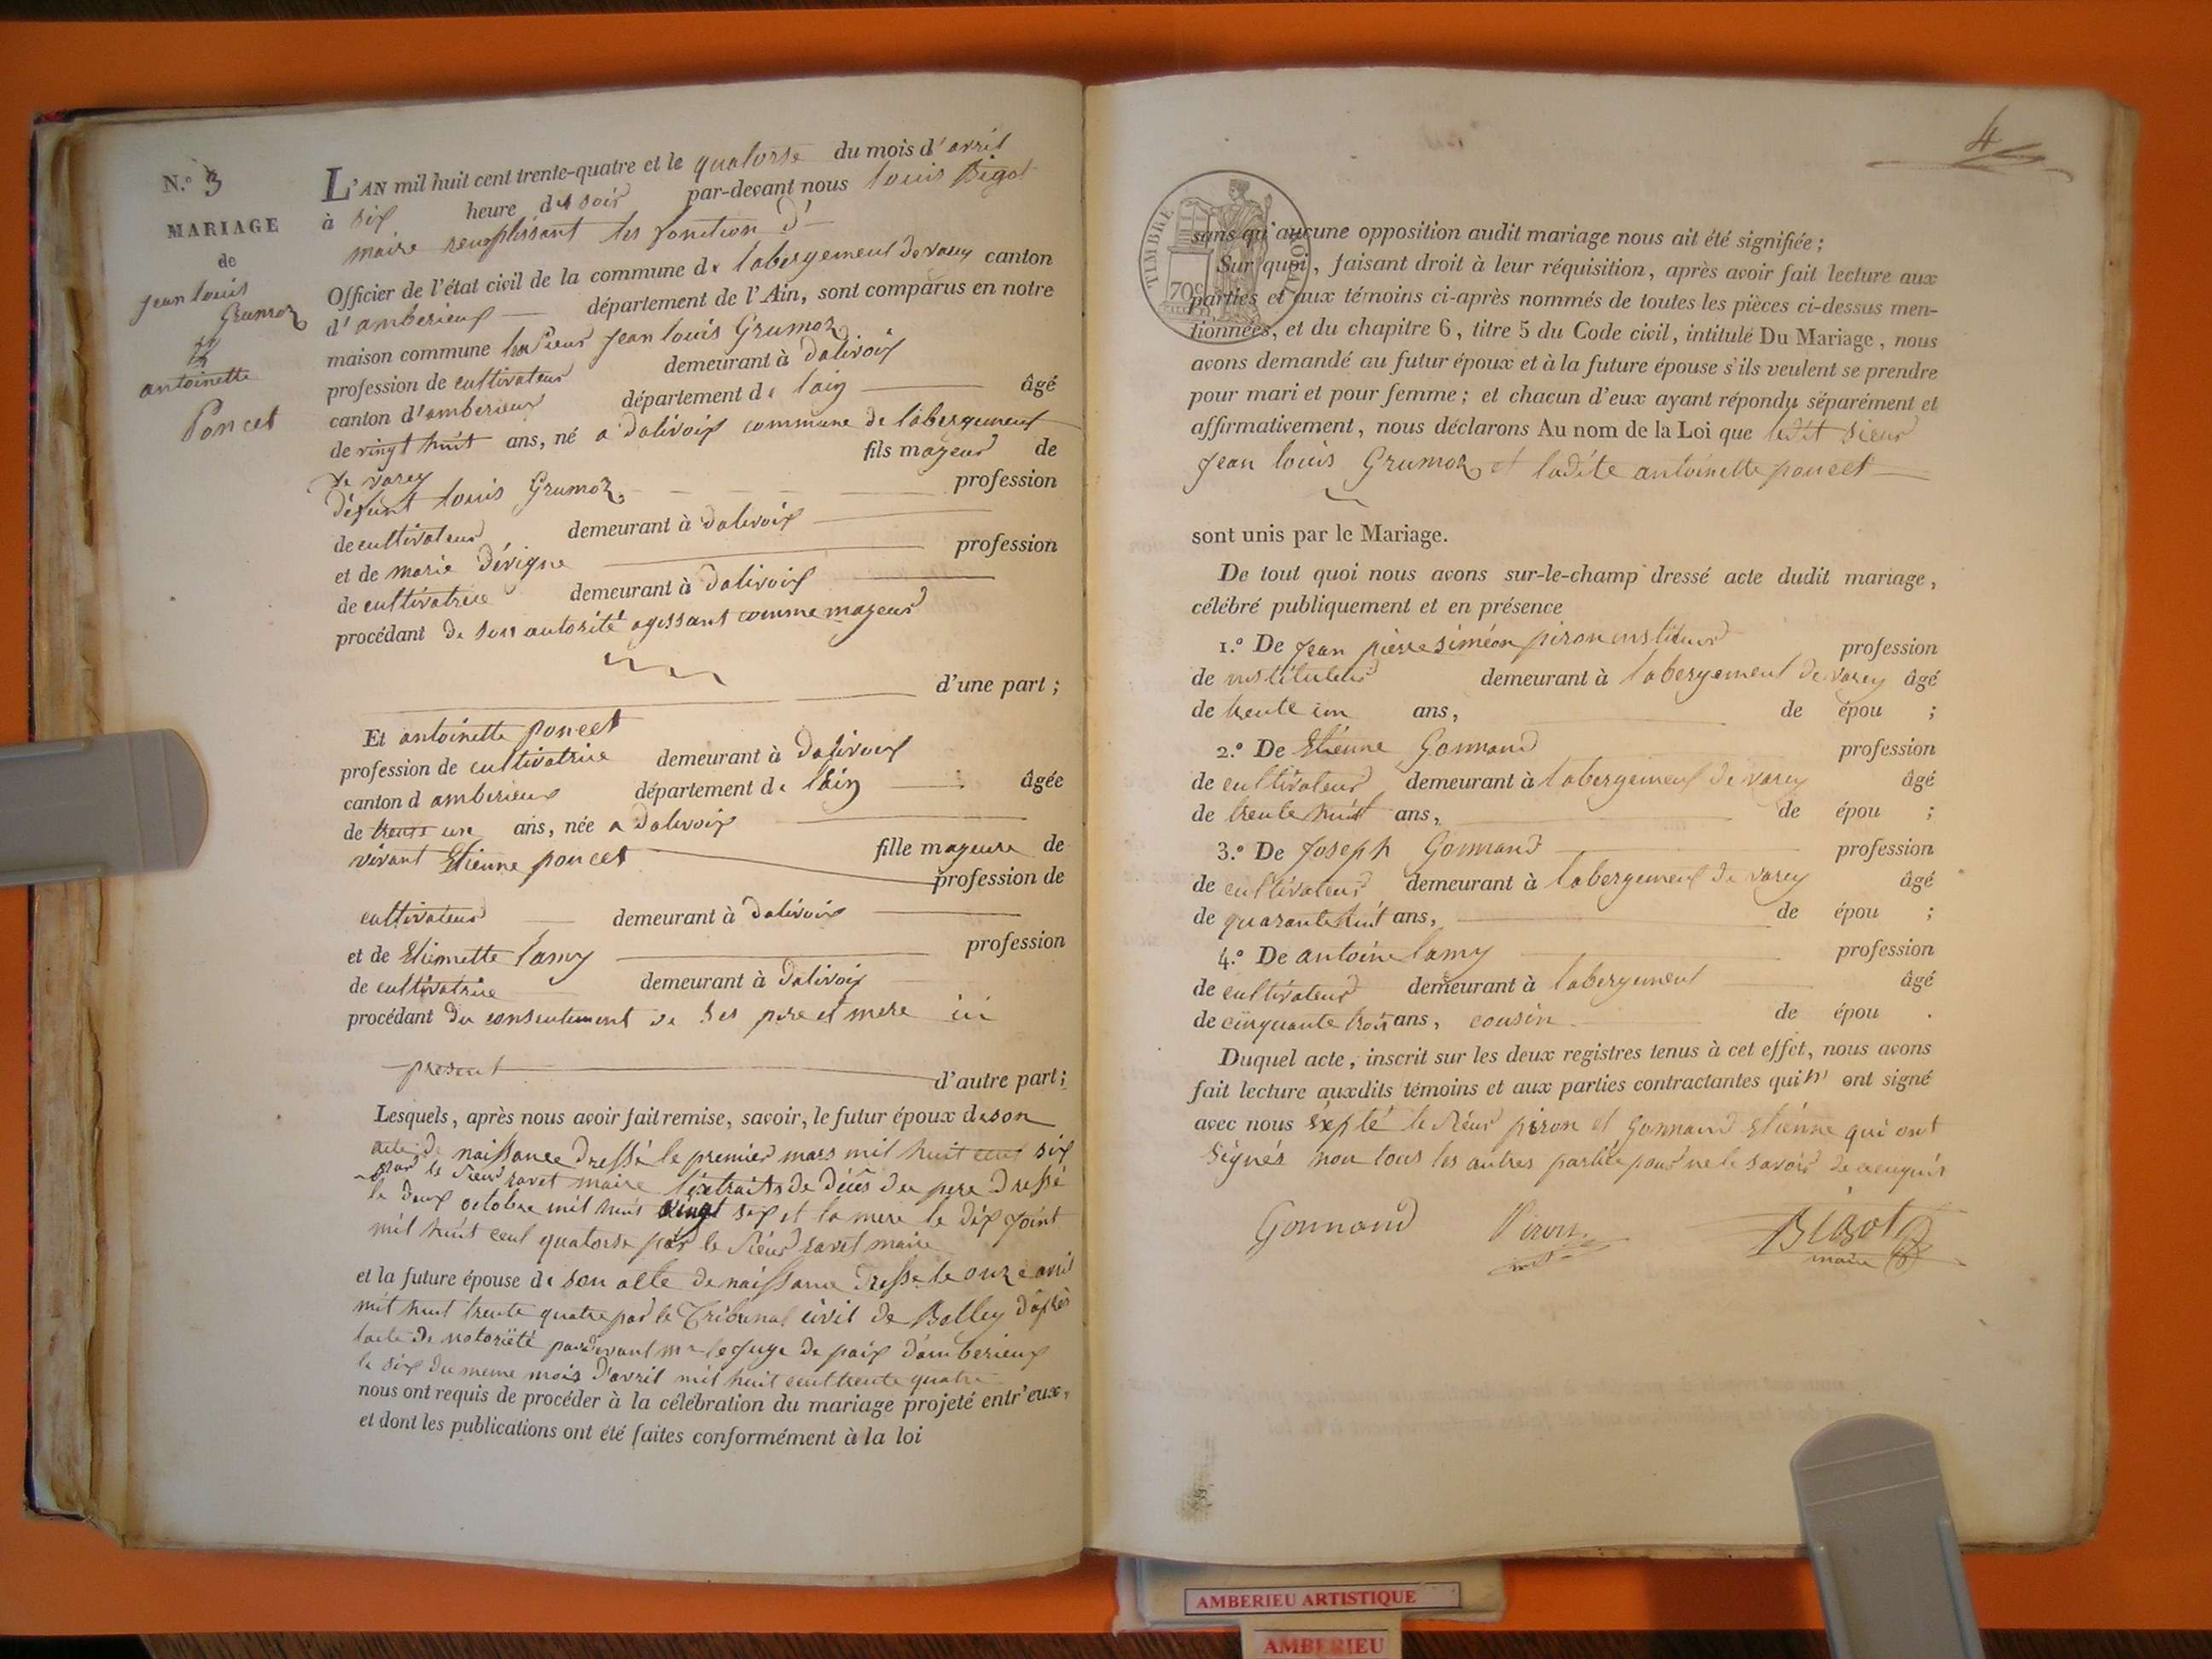 N.° 3
MARIAGE
de
jean louis
Grumoz
et
antoinette
Poncet
L'AN mil huit cent trente-quatre et le quatorse du mois d'avril
à six heure du soir par-devant nous louis Bigot
maire remplissant les fonction d'
Officier de l'état civil de la commune de labergement de varey canton
d'amberieux département de l'Ain, sont comparus en notre
maison commune le sieur jean louis Grumoz
profession de cultivateur demeurant à dalivoix
canton d'amberieux département de lain âgé
de vingt huit ans, né a dalivoix commune de labergement
de varey fils mayeur de
défunt louis Grumoz profession
de cultivateur demeurant à dalivoix
et de marie dévigne profession
de cultivatrice demeurant à dalivoix
procédant de son autorité agissant comme mayeur
d'une part ;
Et antoinette poncet
profession de cultivatrice demeurant à dalivoix
canton d amberieux département de lain âgée
de trente une ans, née a dalivoix
fille mayeure de
vivant Etienne poncet profession de
cultivateur demeurant à dalivoix
et de Etiennette lamy profession
de cultivatrice demeurant à dalivoix
procédant du consentement de ses pere et mere ici
present d'autre part ;
Lesquels, après nous avoir fait remise, savoir, le futur époux de son
acte de naissance dressé le premier mars mil huit cent six
par le sieur savet maire l'extraits de décès du pere dressé
le deux octobre mil huit vingt six et la mere le dix joint
mil huit cent quatorse par le sieur savet maire
et la future épouse de son acte de naissance dresse le onze avril
mil huit trente quatre par le Tribunal civil de Belley d'après
lacte de notoriété pardevant mr le juge de paix d'amberieux
le six du meme mois d'avril mil huit cent trente quatre
nous ont requis de procéder à la célébration du mariage projeté entr'eux,
et dont les publications ont été faites conformément à la loi
4
TIMBRE ROYAL
70c
sans qu'aucune opposition audit mariage nous ait été signifiée ;
Sur quoi, faisant droit à leur réquisition, après avoir fait lecture aux
parties et aux témoins ci-après nommés de toutes les pièces ci-dessus men-
tionnées, et du chapitre 6, titre 5 du Code civil, intitulé Du Mariage, nous
avons demandé au futur époux et à la future épouse s'ils veulent se prendre
pour mari et pour femme ; et chacun d'eux ayant répondu séparément et
affirmativement, nous déclarons Au nom de la Loi que ledit sieur
jean louis Grumoz et ladite antoinette poncet
sont unis par le Mariage.
De tout quoi nous avons sur-le-champ dressé acte dudit mariage,
célébré publiquement et en présence
1.° De jean pierre siméon piron instituteur profession
de instituteur demeurant à labergement de varey âgé
de trente cin ans, de épou ;
2.° De Etienne Gonnand profession
de cultivateur demeurant à labergement de varey âgé
de trente huit ans, de épou ;
3.° De Joseph Gonnand profession
de cultivateur demeurant à labergement de varey âgé
de quarante huit ans, de épou ;
4.° De antoine lamy profession
de cultivateur demeurant à labergement âgé
de cinquante trois ans, cousin de épou .
Duquel acte, inscrit sur les deux registres tenus à cet effet, nous avons
fait lecture auxdits témoins et aux parties contractantes qui n' ont signé
avec nous éxpté le sieur piron et Gonnand Etienne qui ont
signés non tous les autres partie pour ne le savoir de ce enquis
Gonnand Piron Bigot
maire
AMBERIEU ARTISTIQUE
AMBERIEU